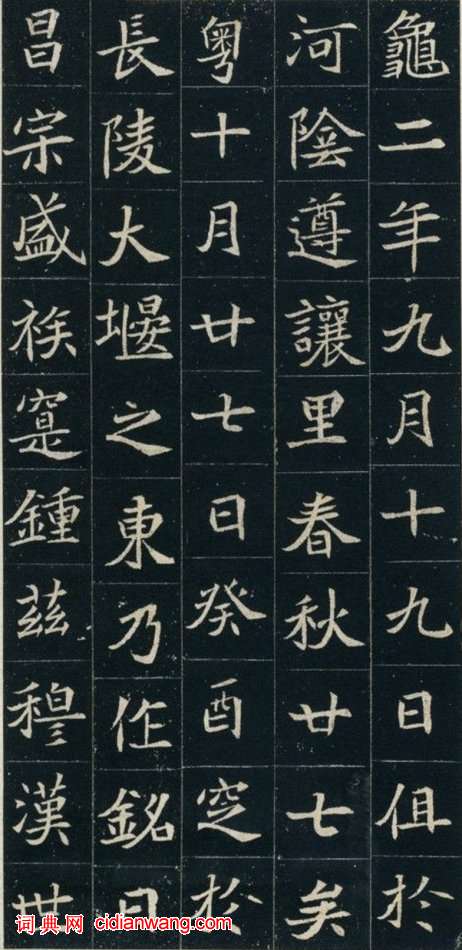 龜二年九月十九日伹扵
河陰遵讓里春秋廿七矣
粵十月廿七日癸酉窆扵
長陵大堰之東乃作銘曰
昌宗盛族寔鍾茲穆漢世
词典网 cidianwang.com